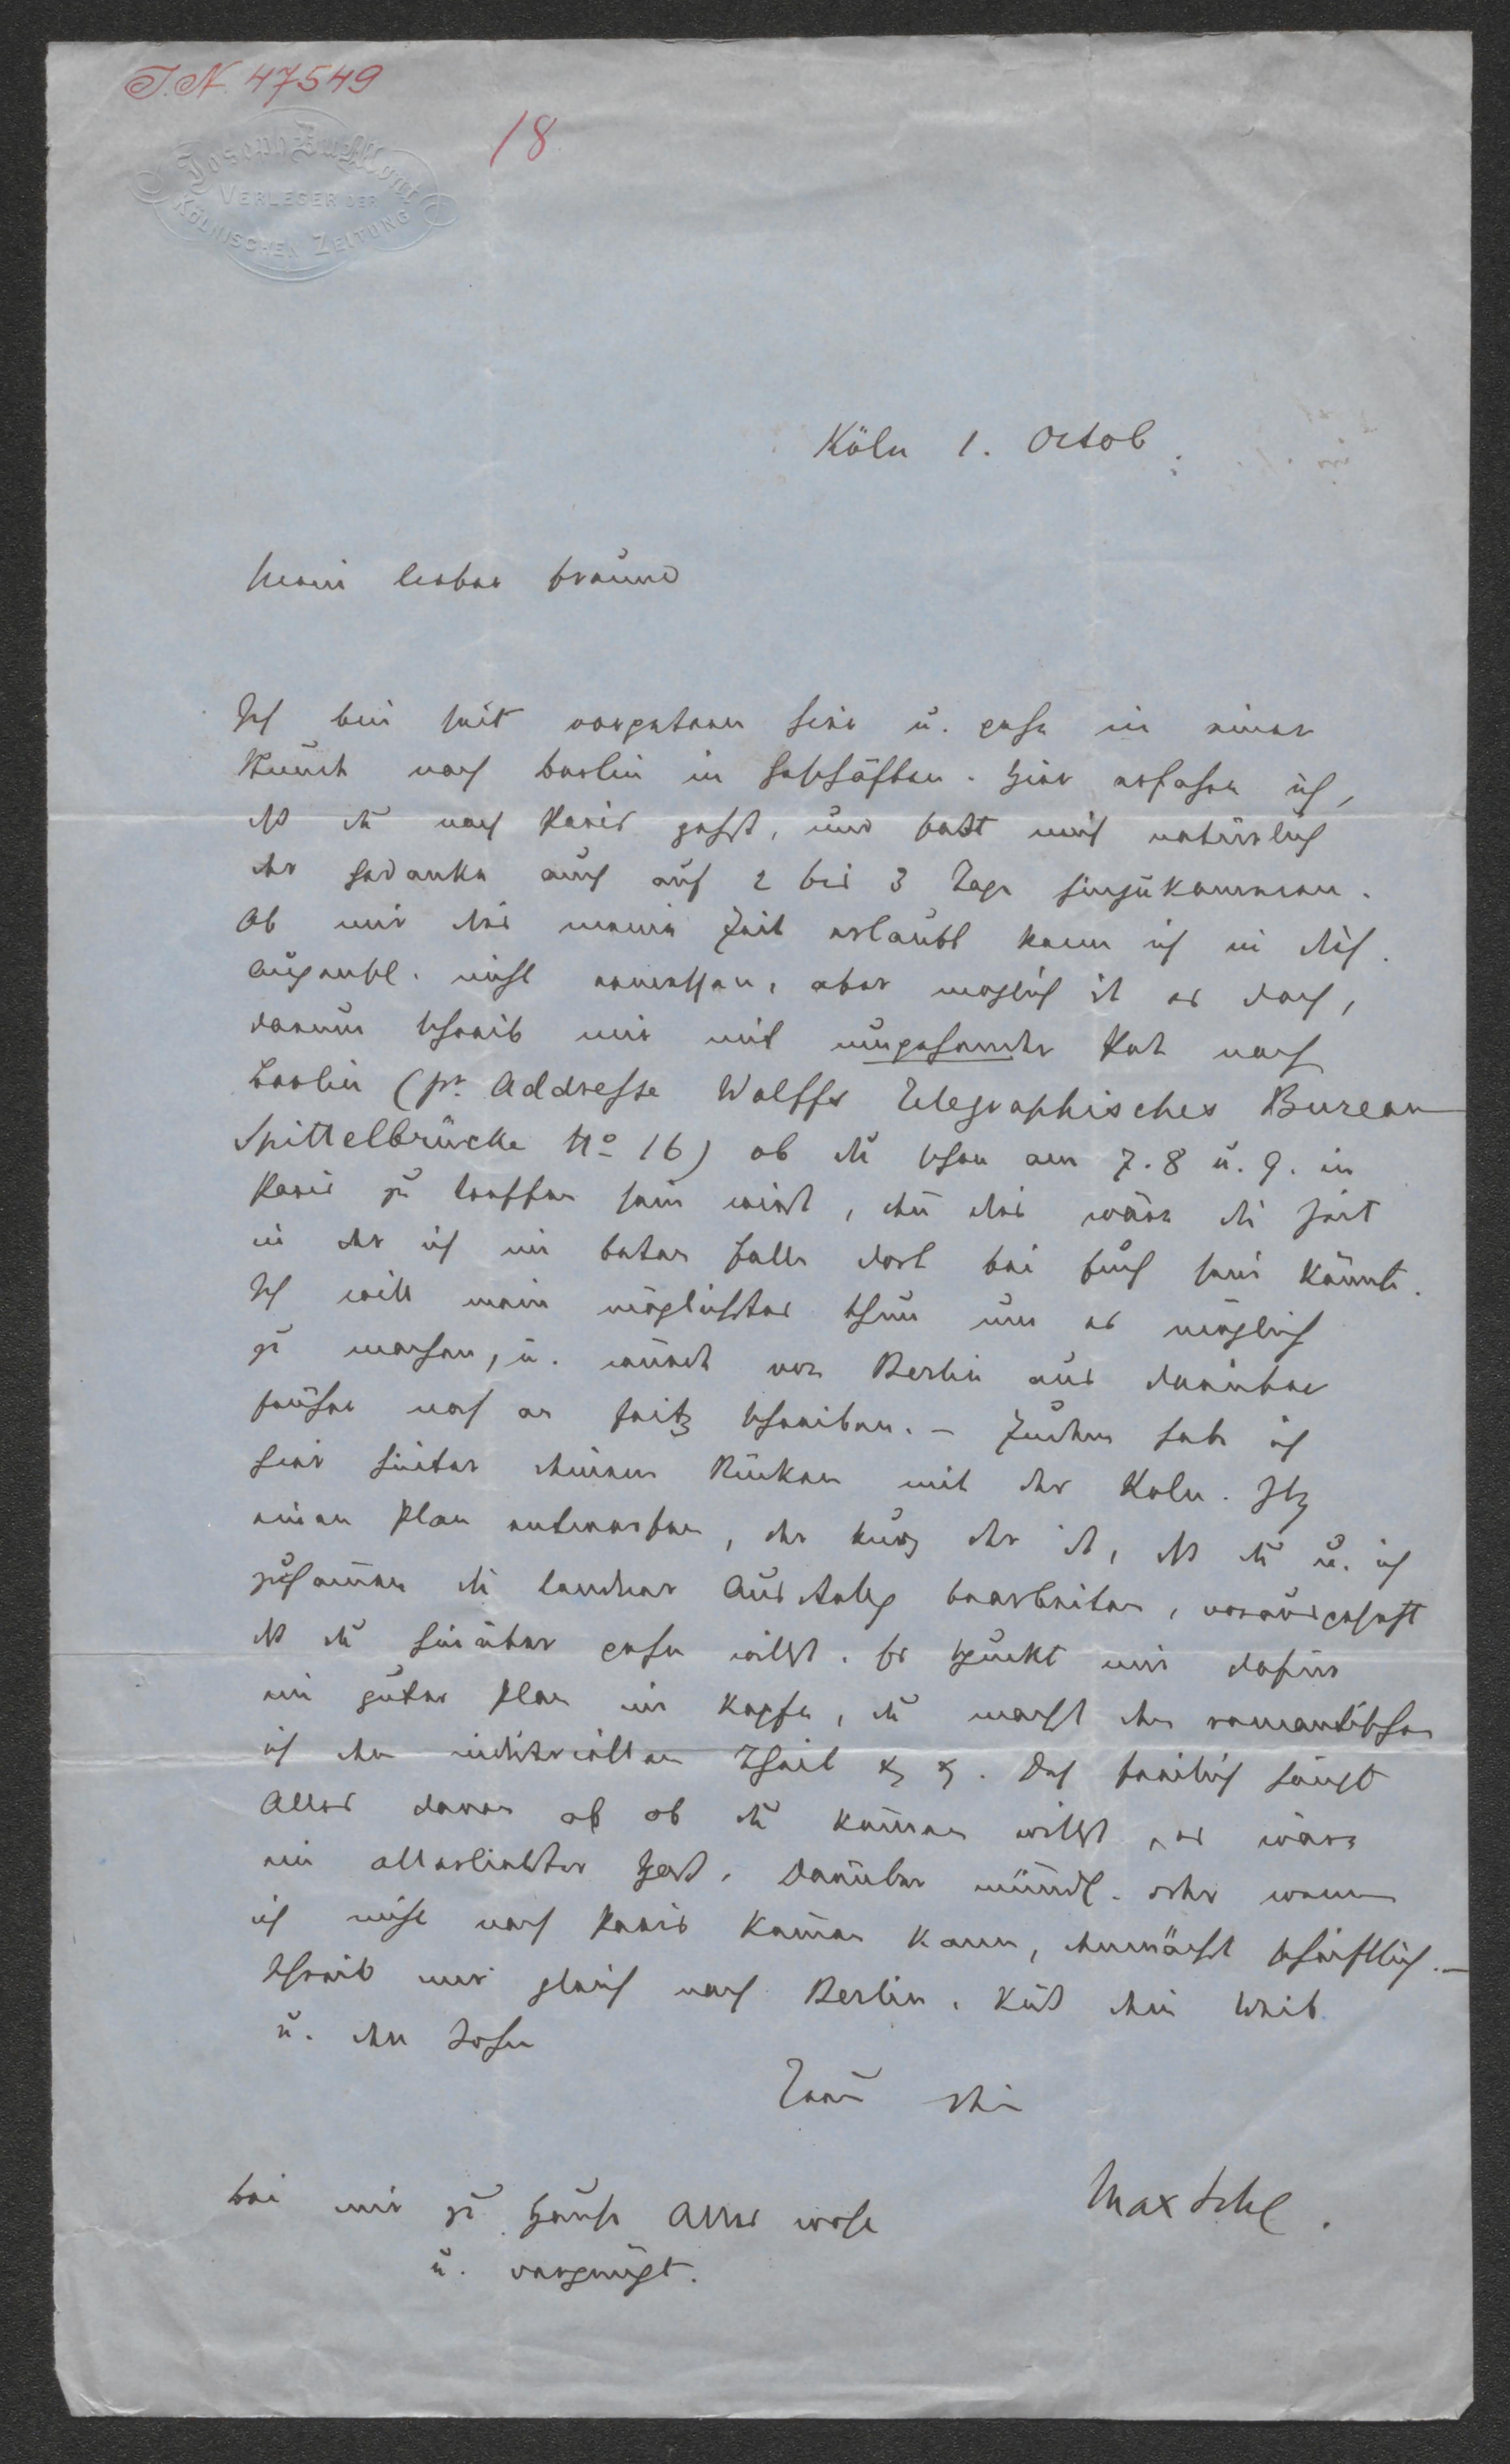 I. N. 47549
18
Joseph DuMont
VERLEGER DER
KÖLNISCHEN ZEITUNG
Köln 1. Octob.
Mein lieber Freund
Ich bin seit vorgestern hier u. gehe in einer
Stunde nach Berlin in Geschäften. Hier erfahre ich,
daß du nach Paris gehst, und faßt mich natürlich
der Gedanke auch auf 2 bis 3 Tage hinzukommen.
Ob mir dies meine Zeit erlaubt kann ich in dies.
Augenbl. nicht ermessen, aber möglich ist es doch,
darum schreib mir mit umgehender Post nach
Berlin (pr. Addresse Wolffs Telegraphisches Bureau
Spittelbrücke No 16) ob du schon am 7. 8 u. 9. in
Paris zu treffen sein wirst, den dies wäre die Zeit
in der ich im besten Falle dort bei Euch sein könnte.
Ich will mein möglichstes thun um es möglich
zu machen, u. werde von Berlin aus darüber
früher noch an Fritz schreiben. – Zudem habe ich
hier hinter deinem Rücken mit der Köln. Ztg
einen Plan entworfen, der kurz der ist, daß du u. ich
zusammen die Londner Ausstellg bearbeiten, vorausgesetzt
daß du hinüber gehen willst. Es spuckt mir dafür
ein guter Plan im Kopfe, du machst den romantischen
ich den industriellen Theil &c &c. Doch freilich hängt
Alles davon ab ob du kommen willst, es wäre
ein allerliebster Spaß. Darüber mündl. oder wenn
ich nicht nach Paris kommen kann, demnächst schriftlich. –
Schreib mir gleich nach Berlin. Küß dein Weib
u. den Sohn
Treu dein
Max Schl.
Bei mir zu Hause Alles wohl
u. vergnügt.